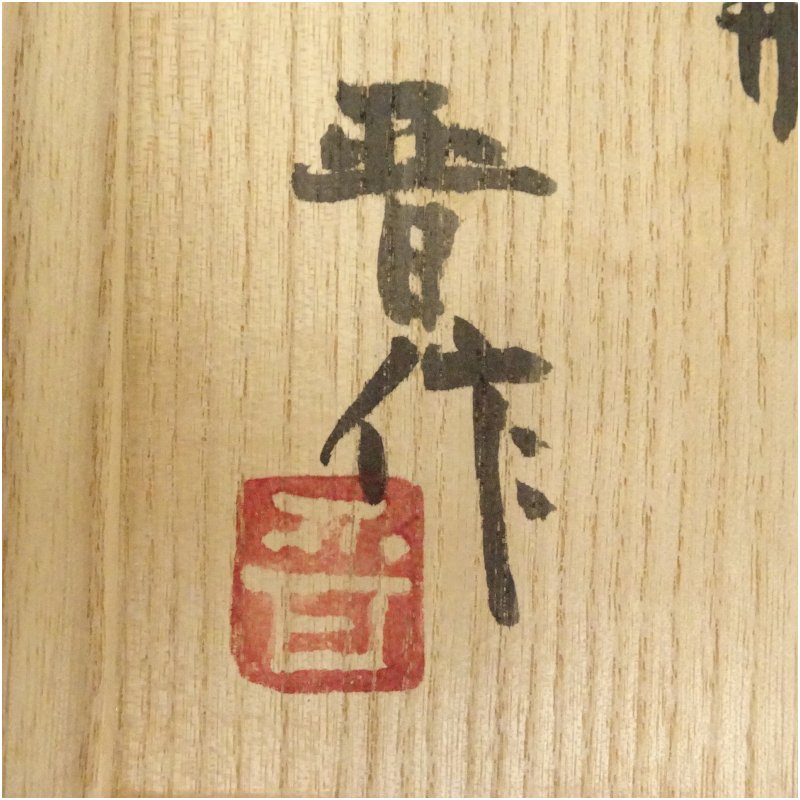 晋作
晋